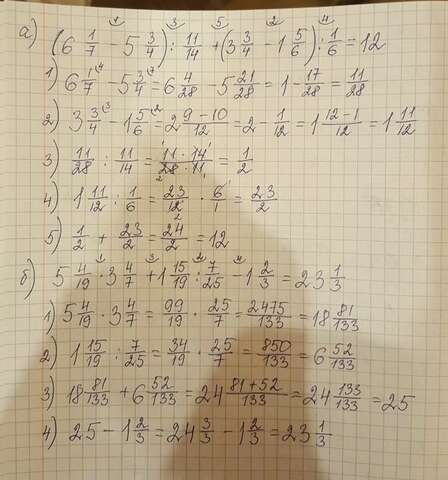 а) (6 1/7 - 5 3/4) : 11/14 + (3 3/4 - 1 5/6) : 1/6 = 12
1) 6 1/7 - 5 3/4 = 6 4/28 - 5 21/28 = 1 - 17/28 = 11/28
2) 3 3/4 - 1 5/6 = 2 9-10/12 = 2 - 1/12 = 1 12-1/12 = 1 11/12
3) 11/28 : 11/14 = 11·14/28·11 = 1/2
4) 1 11/12 : 1/6 = 23/12 · 6/1 = 23/2
5) 1/2 + 23/2 = 24/2 = 12
б) 5 4/19 · 3 4/7 + 1 15/19 : 7/25 - 1 2/3 = 23 1/3
1) 5 4/19 · 3 4/7 = 99/19 · 25/7 = 2475/133 = 18 81/133
2) 1 15/19 : 7/25 = 34/19 · 25/7 = 850/133 = 6 52/133
3) 18 81/133 + 6 52/133 = 24 81+52/133 = 24 133/133 = 25
4) 25 - 1 2/3 = 24 3/3 - 1 2/3 = 23 1/3